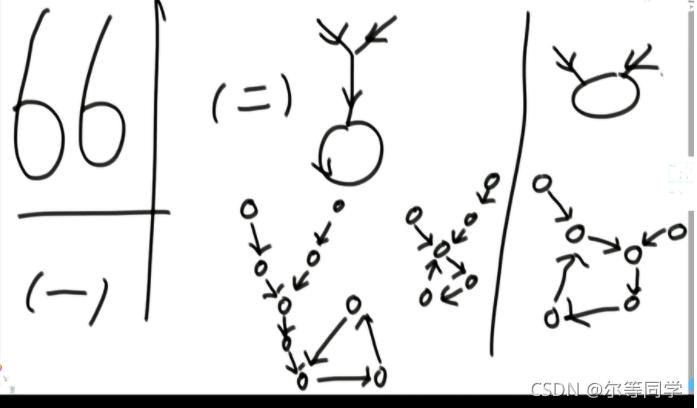 66
(二)
(一)
CSDN @尔等同学